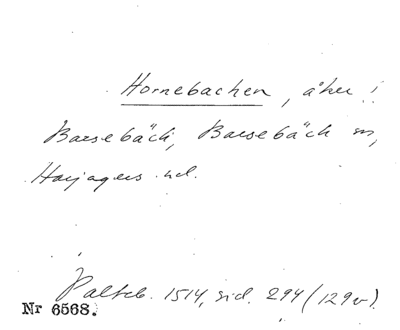 Hornebachen, åker i
Barsebäck, Barsebäck sn,
Harjagers hd.
Palteb. 1514, sid. 294 (129v).
Nr 6568.